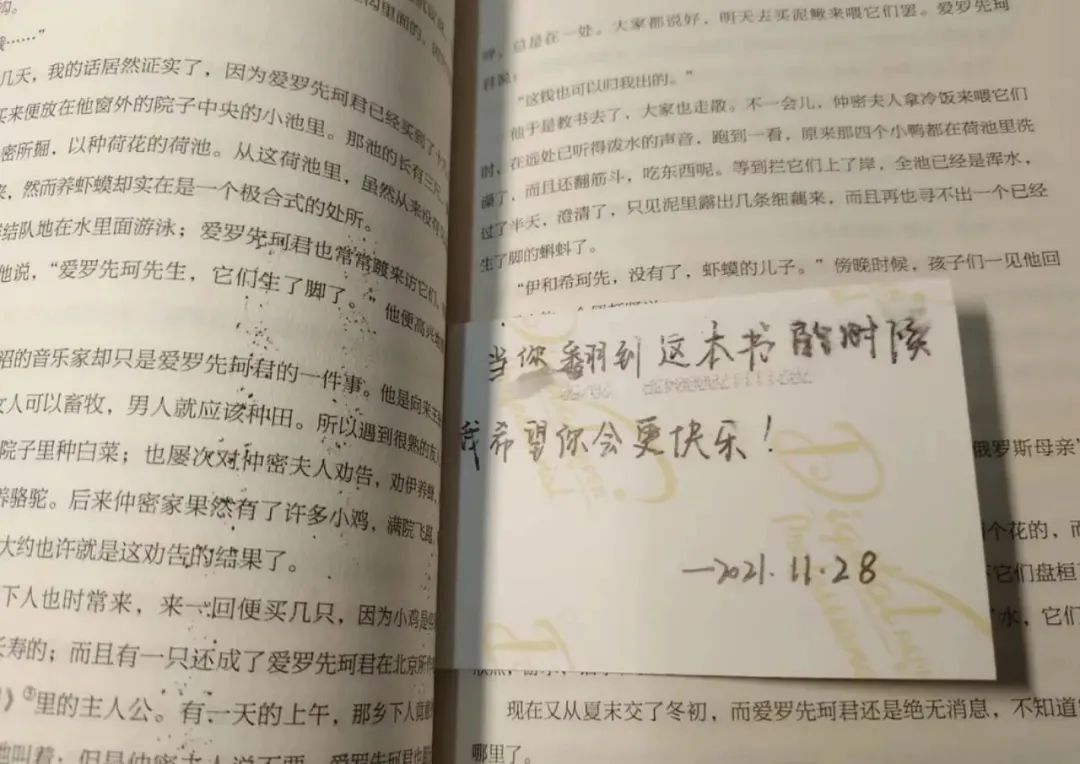 沟。
几天，我的话居然证实了，因为爱罗先珂君已经买到了十
买来便放在他窗外的院子中央的小池里。那池的长有三尺，
密所掘，以种荷花的荷池。从这荷池里，虽然从来没有
来，然而养虾蟆却实在是一个极合式的处所。
结队地在水里面游泳；爱罗先珂君也常常踱来访它们。
他说，“爱罗先珂先生，它们生了脚了。”他便高兴
昭的音乐家却只是爱罗先珂君的一件事。他是向来主
女人可以畜牧，男人就应该种田。所以遇到很熟的友
院子里种白菜；也屡次对仲密夫人劝告，劝伊养蜂，
养骆驼。后来仲密家果然有了许多小鸡，满院飞跑，
大约也许就是这劝告的结果了。
下人也时常来，来一回便买几只，因为小鸡是
长寿的；而且有一只还成了爱罗先珂君在北京所作
》③里的主人公。有一天的上午，那乡下人竟
地叫着；但是仲密夫人说不要。爱罗先珂君也
呼，总是在一处。大家都说好，明天去买泥鳅来喂它们罢。爱罗先珂
君说，
“这钱也可以归我出的。”
他于是教书去了，大家也走散。不一会儿，仲密夫人拿冷饭来喂它们
时，在远处已听得泼水的声音，跑到一看，原来那四个小鸭都在荷池里洗
澡了，而且还翻筋斗，吃东西呢。等到拦它们上了岸，全池已经是浑水，
过了半天，澄清了，只见泥里露出几条细藕来，而且再也寻不出一个已经
生了脚的蝌蚪了。
“伊和希珂先，没有了，虾蟆的儿子。”傍晚时候，孩子们一见他回
当你翻到这本书的时候
我希望你会更快乐！
—2021.11.28
俄罗斯母亲”
个花的，而
下它们盘桓
水，它们
现在又从夏末交了冬初，而爱罗先珂君还是绝无消息，不知道
哪里了。